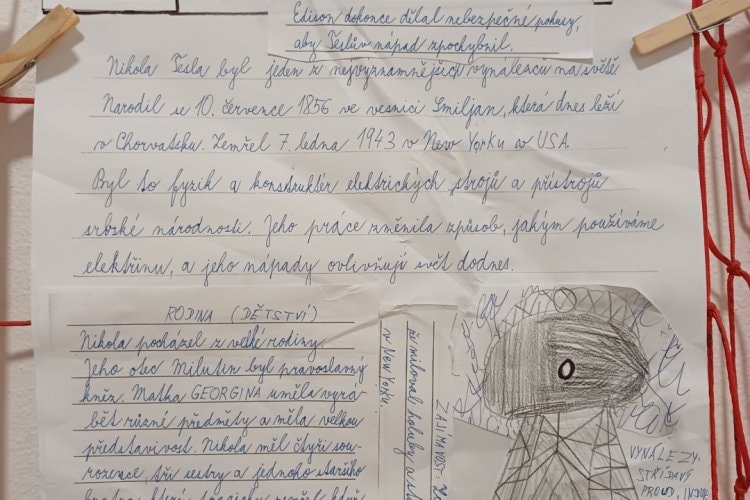 Edison dokonce dělal nebezpečné pokusy,
aby Teslův nápad zpochybnil.
Nikola Tesla byl jeden z nejvýznamnějších vynálezců na světě
Narodil se 10. července 1856 ve vesnici Smiljan, která dnes leží
v Chorvatsku. Zemřel 7. ledna 1943 v New Yorku v USA
Byl to fyzik a konstruktér elektrických strojů a přístrojů
srbské národnosti. Jeho práce změnila způsob, jakým používáme
elektřinu, a jeho nápady ovlivňují svět dodnes.
RODINA (DĚTSTVÍ)
Nikola pocházel z velké rodiny.
Jeho otec Milutin byl pravoslavný
kněz. Matka GEORGINA uměla vyra-
bět různé předměty a měla velkou
představivost. Nikola měl čtyři sou-
rozence, tři sestry a jednoho staršího
bratra, který tragicky zemřel, když
ZAJÍMAVOST:
že miloval holuby a
v New Yorku.
VYNÁLEZY:
STŘÍDAVÝ
PROUD,